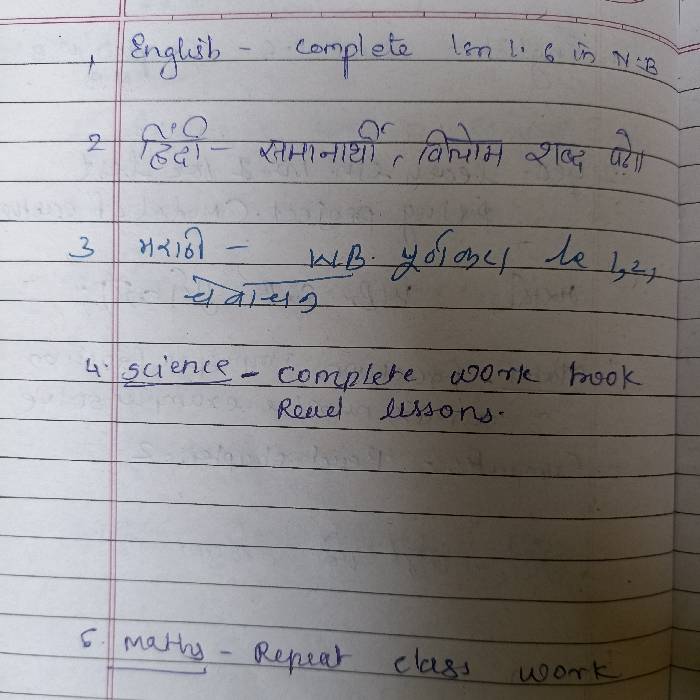 1, English - complete lsn 1. 6 in N.B
2 हिंदी - समानार्थी, विलोम शब्द पढो।
3 मराठी - W.B. पूर्ण करा le 1,2,
व वाचन
4. science - complete work book
Read lessons.
5. maths - Repeat class work